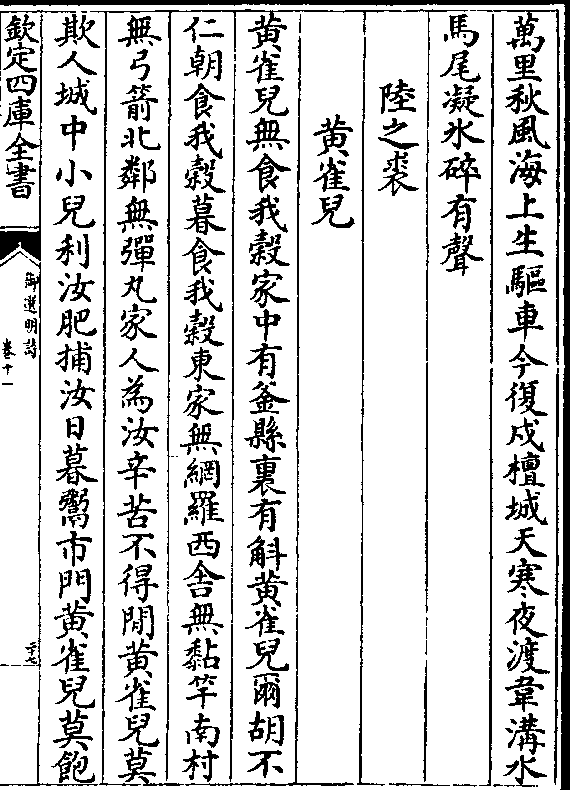 萬里秋風海上生驅車今復戍檀城天寒夜渡韋溝水
馬尾凝氷碎有聲
陸之裘
黄雀兒
黄雀兒無食我榖家中有釜縣裏有斛黄雀兒爾胡不
仁朝食我榖暮食我榖東家無網羅西舍無黏竿南村
無弓箭北鄰無彈丸家人為汝辛苦不得閒黄雀兒莫
欺人城中小兒利汝肥捕汝日暮鬻市門黄雀兒莫飽
欽定四庫全書
御選明詩
卷十一
二十七